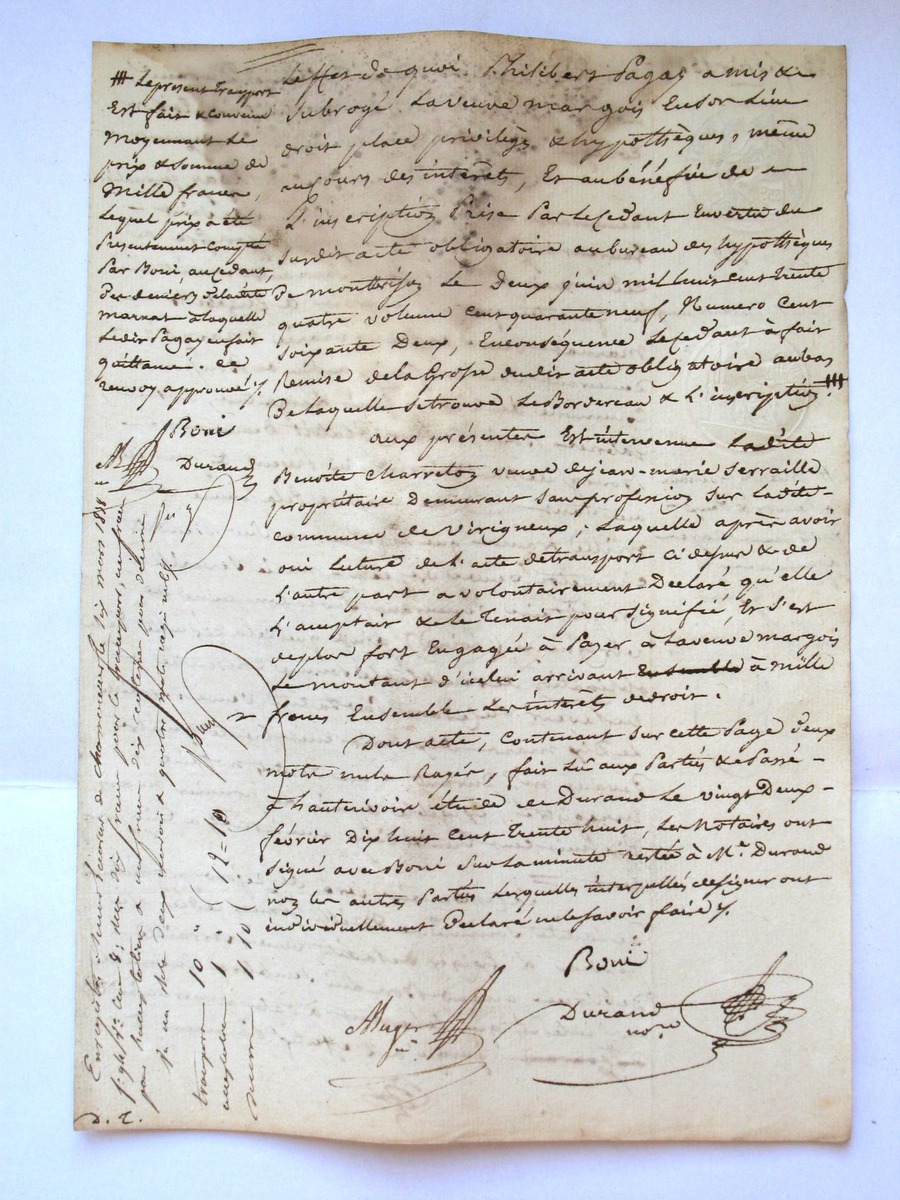 Leffet de quoi Philibert Pagay a mis &
subrogé La veuve margois En son Lieu
droit place privilèges & hypothèques, même
au Cours des intérêts, Et au bénéfice de
L'inscription Prise Par Le Cedant En vertu du
susdit acte obligatoire au bureau des hypothèques
De montbrison Le Deux juin mil huit cent trente
quatre volume Cent quarante neuf, Numero Cent
soixante Deux, En conséquence Le Cedant à fait
Remise de la Grosse dudit acte obligatoire au bas
De laquelle se trouve Le Bordereau & L'inscription.
aux présentes Est intervenue Ladite
Benoîte Charretoy veuve de jean-marie Serraille
propriétaire Demeurant sans profession sur Ladite
commune de Virigneux; Laquelle après avoir
oui Lecture de L'acte de transport Ci dessus & de
L'autre part a volontairement Déclaré qu'elle
L'acceptait & le Tenait pour signifié, Et s'est
de plus fort Engagée à Payer à La veuve margois
Le montant d'icelui arrivant Ensemble à mille
francs Ensemble Les intérêts de droit.
Dont acte, Contenant sur cette Page Deux
mots nuls Rayés, fait Lû aux Parties & Passé
à hauterivoire étude de me Durand Le vingt Deux
février Dix huit Cent Trente huit, Les Notaires ont
signé avec Boni Sur La minute restée à Me. Durand
non les autres Parties Lesquelles interpellées de signer ont
individuellement Déclaré ne le savoir faire
Boni
Auger
Durand
nore
Le présent Transport
Est fait & Convenu
Moyennant Le
prix & Somme de
Mille francs,
Lequel prix a été
Présentement Compté
Par Boni, au cedant
Des deniers de ladite
marnat à laquelle
Ledit Pagay en fait
quittance. Ce
renvoy approuvé
Boni
Durand
Enregistré à Saint Laurent de chamousset le six mars 1838
deux dix francs pour le transport, un franc
pour un franc dix centimes pour décime
transport 10
1
décime 1 10
12=10
D. R.